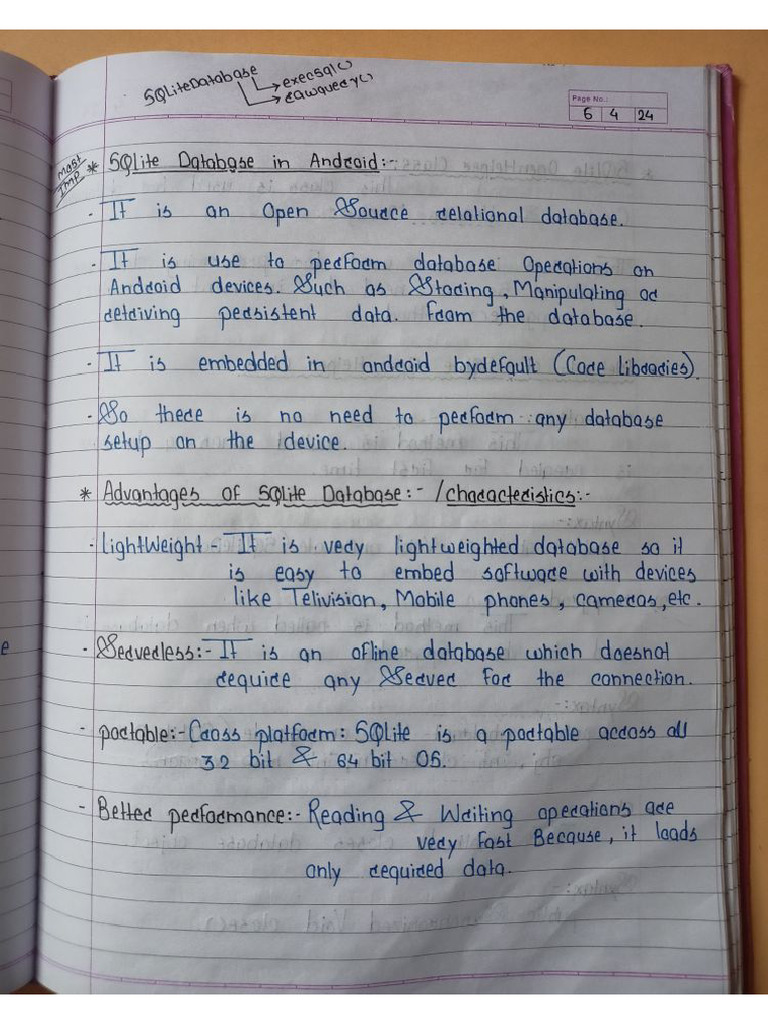 SQLiteDatabase → execsql()
→ rawquery()
Page No.:
6 4 24
Most Imp
* SQlite Database in Android:-
- It is an Open Source relational database.
- It is use to perform database Operations on
Android devices. Such as Storing, Manipulating or
retriving persistent data. From the database.
- It is embedded in android bydefault (Core libraries).
- So there is no need to perform any database
setup on the device.
* Advantages of SQlite Database:- /characteristics:-
- LightWeight - It is very lightweighted database so it
is easy to embed software with devices
like Telivision, Mobile phones, cameras, etc.
- Serverless:- It is an ofline database which doesnot
require any Server For the connection.
- portable:- Cross platform: SQlite is a portable across all
32 bit & 64 bit OS.
- Better performance:- Reading & Writing operations are
very Fast Because, it loads
only required data.